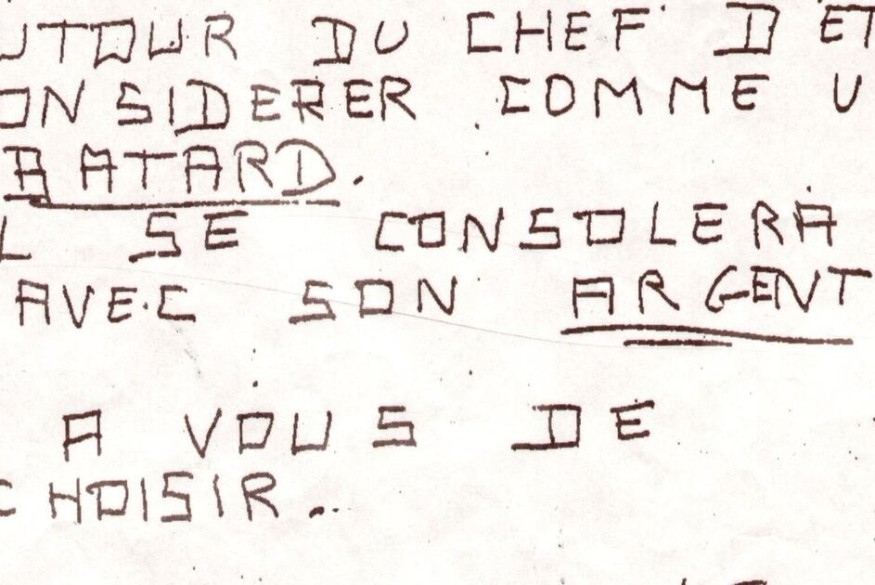 UTOUR DU CHEF D ET
ONSIDERER COMME U
BATARD.
L SE CONSOLERA
AVEC SON ARGENT
A VOUS DE
CHOISIR..